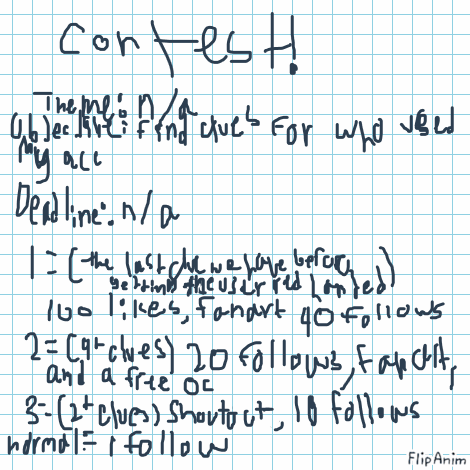 Contest!
Theme: n/a
Objective: find clues for who used
My acc
Deadline: n/a
1 = (the last clue we have before
getting the user red handed)
100 likes, fanart 40 follows
2 = (4+ clues) 20 follows, fanart,
and a free oc
3 = (2+ clues) shoutout, 10 follows
normal = 1 follow
FlipAnim